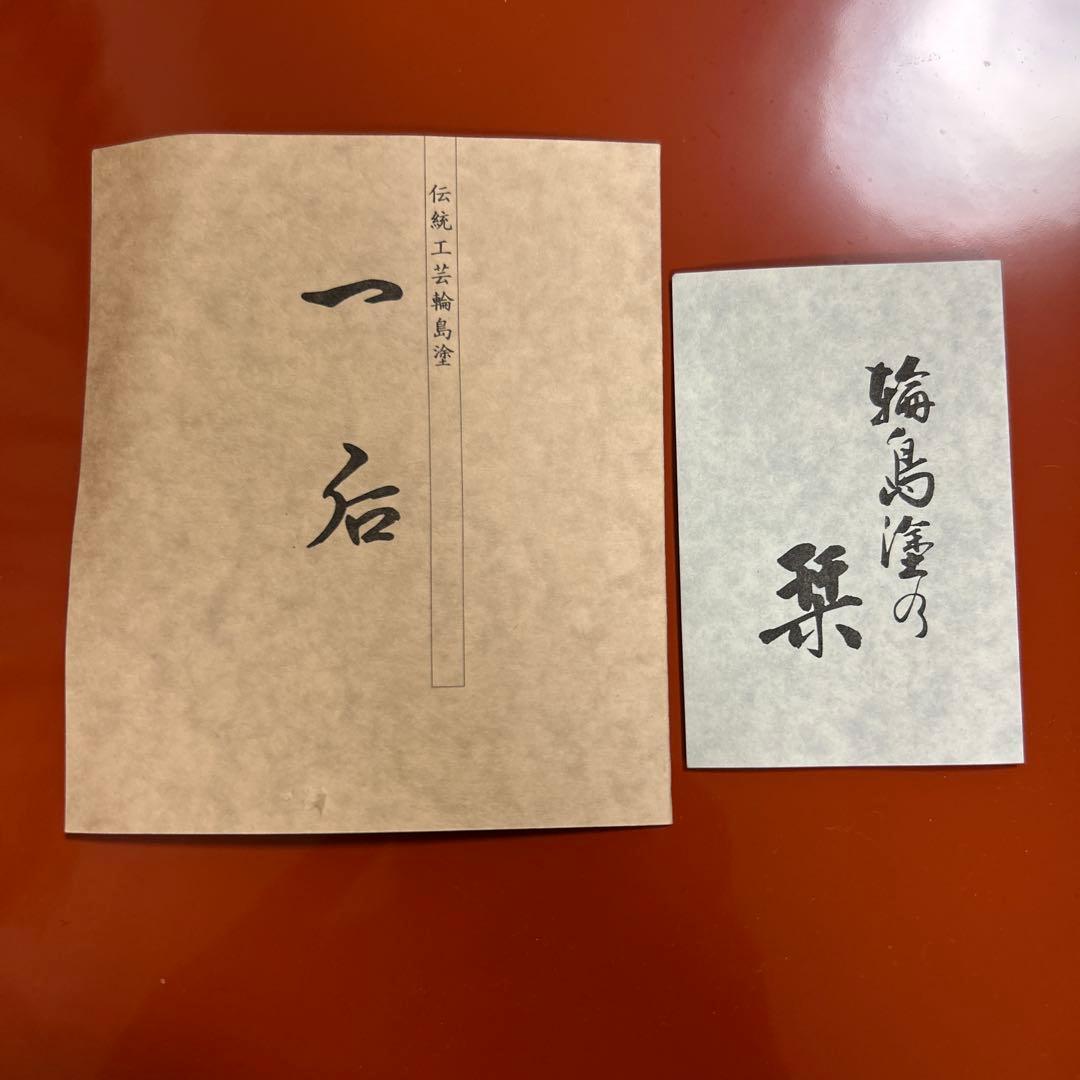 伝統工芸輪島塗
一后
輪島塗の
栞